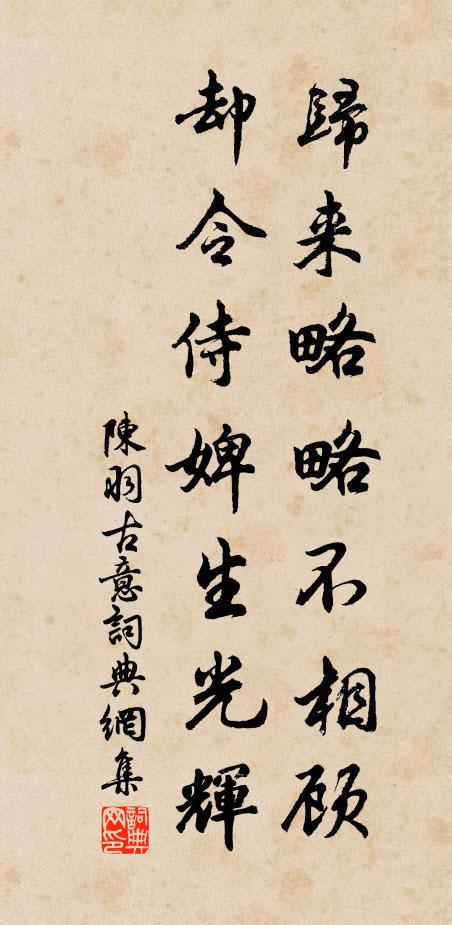 歸来略略不相顾
却令侍婢生光輝
陳羽古意詞典網集
詞典网印